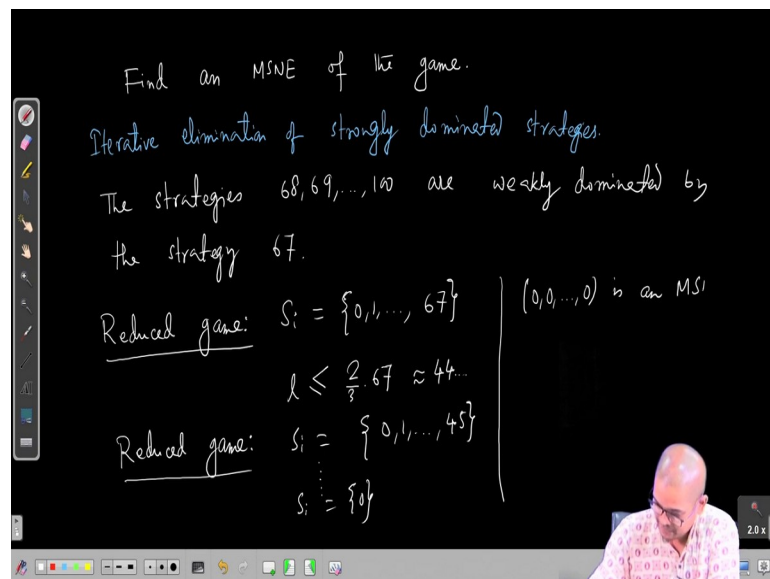 Find an MSNE of the game.
Iterative elimination of strongly dominated strategies.
The strategies 68, 69, ..., 100 are weakly dominated by
the strategy 67.
Reduced game: Si = {0, 1, ..., 67}
l ≤ 2/3 . 67 ≈ 44...
Reduced game: Si = {0, 1, ..., 45}
Si = {0}
(0, 0, ..., 0) is an MS
2.0 x